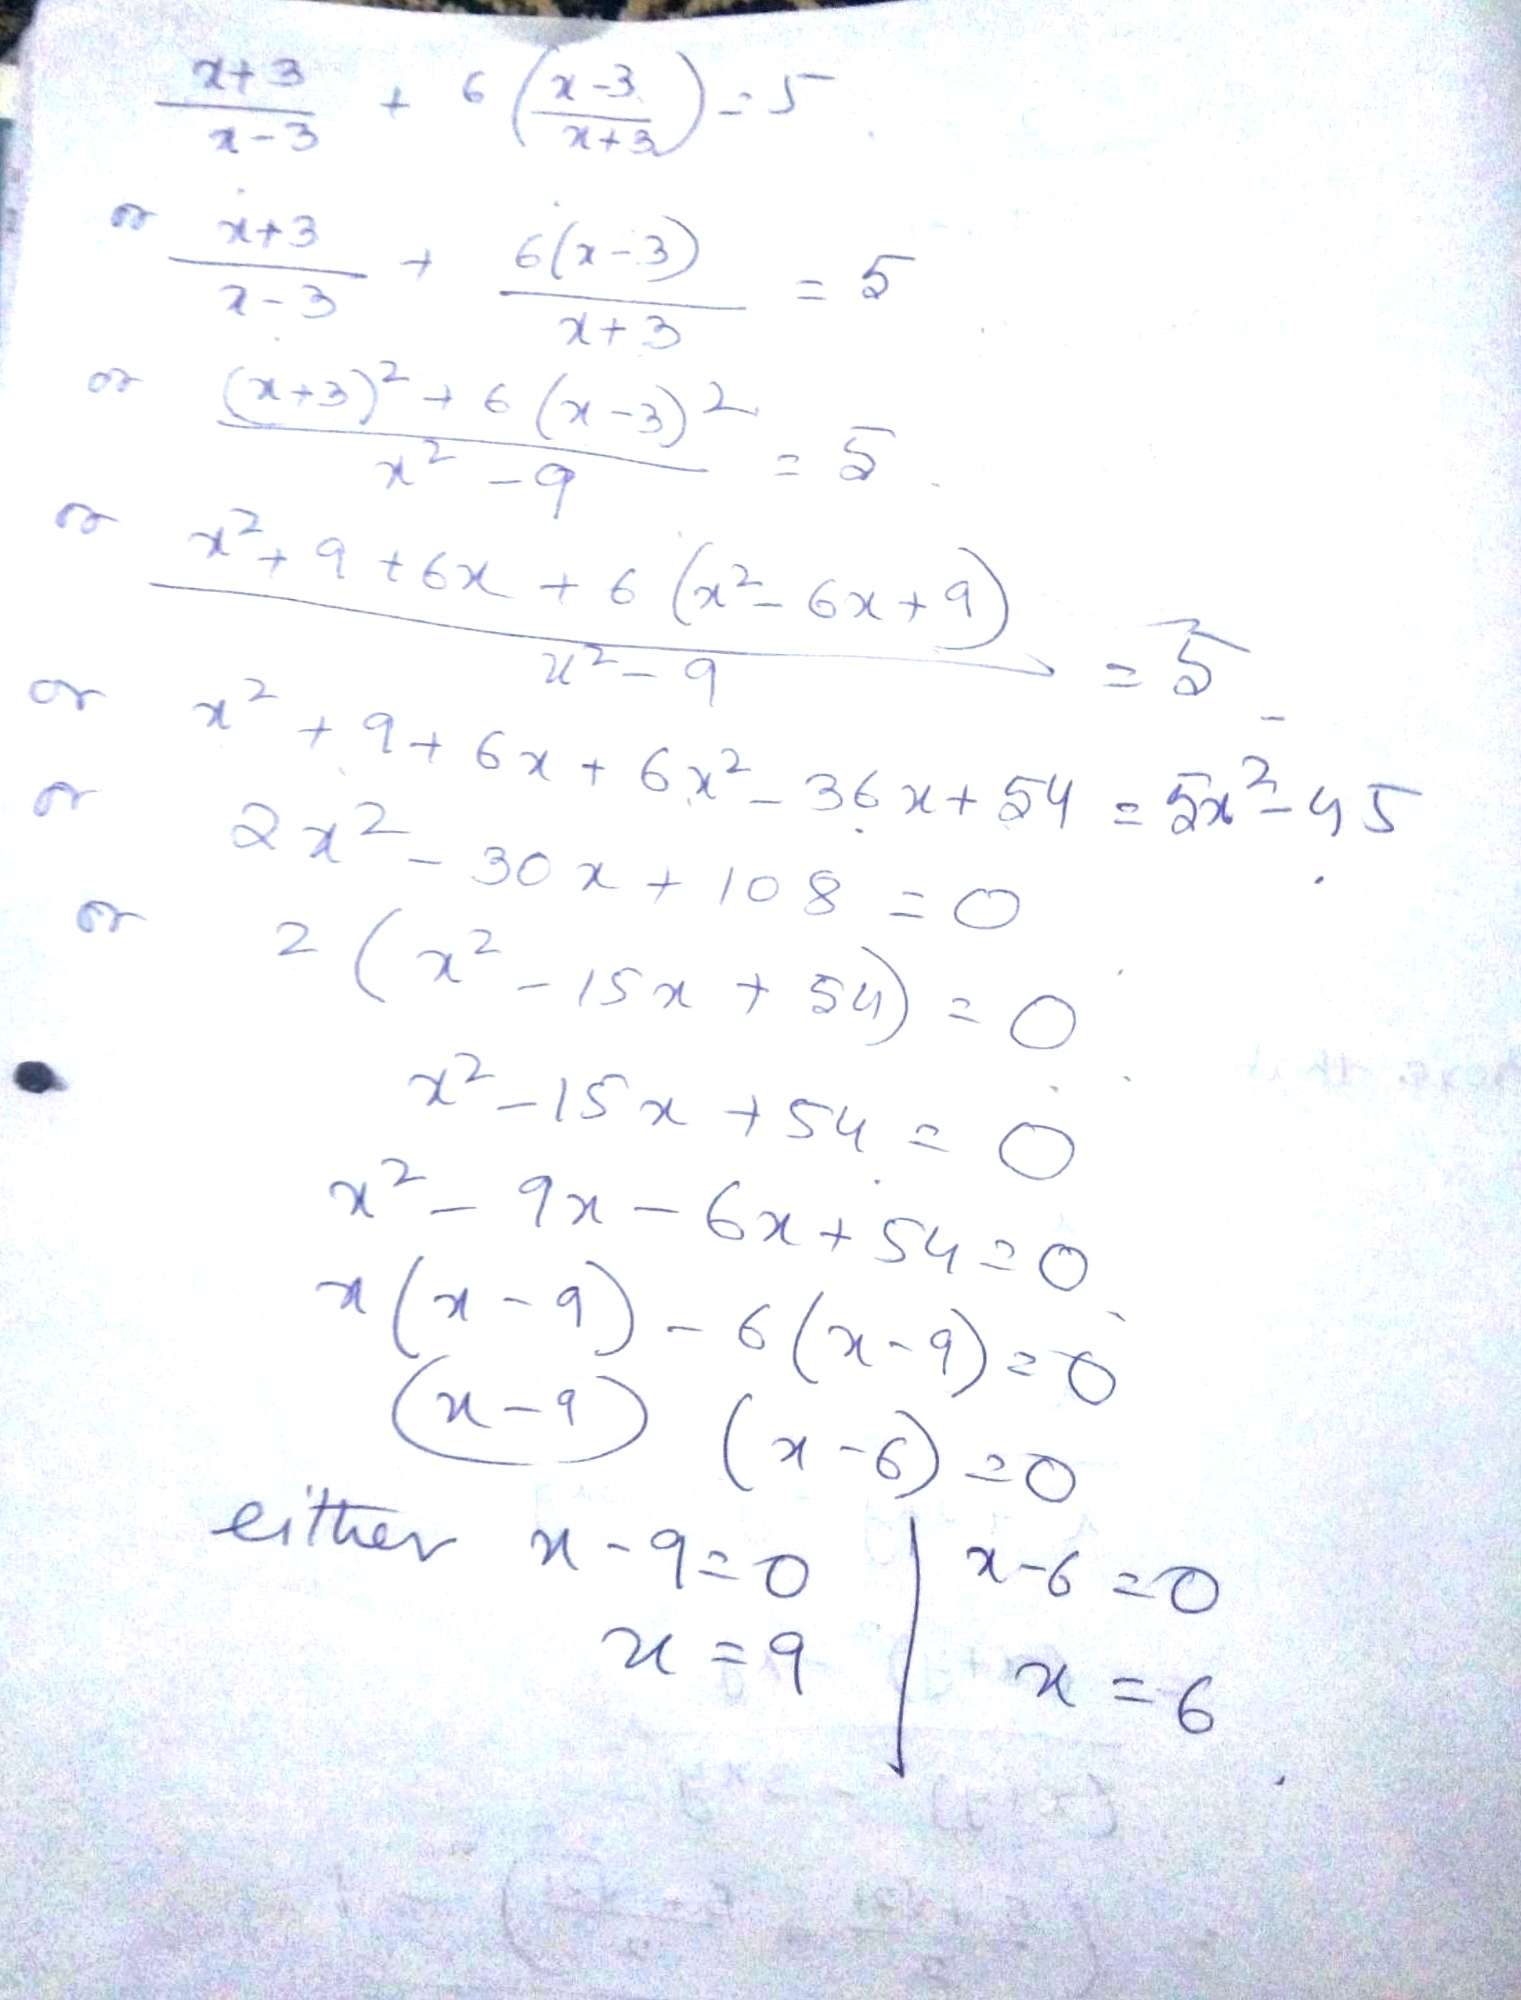 (x+3)/(x-3) + 6((x-3)/(x+3)) = 5
or (x+3)/(x-3) + 6(x-3)/(x+3) = 5
or ((x+3)² + 6(x-3)²)/(x² - 9) = 5
or (x² + 9 + 6x + 6(x² - 6x + 9))/(x² - 9) = 5
or x² + 9 + 6x + 6x² - 36x + 54 = 5x² - 45
or 2x² - 30x + 108 = 0
or 2(x² - 15x + 54) = 0
x² - 15x + 54 = 0
x² - 9x - 6x + 54 = 0
x(x-9) - 6(x-9) = 0
(x-9) (x-6) = 0
either x - 9 = 0 | x - 6 = 0
x = 9 | x = 6